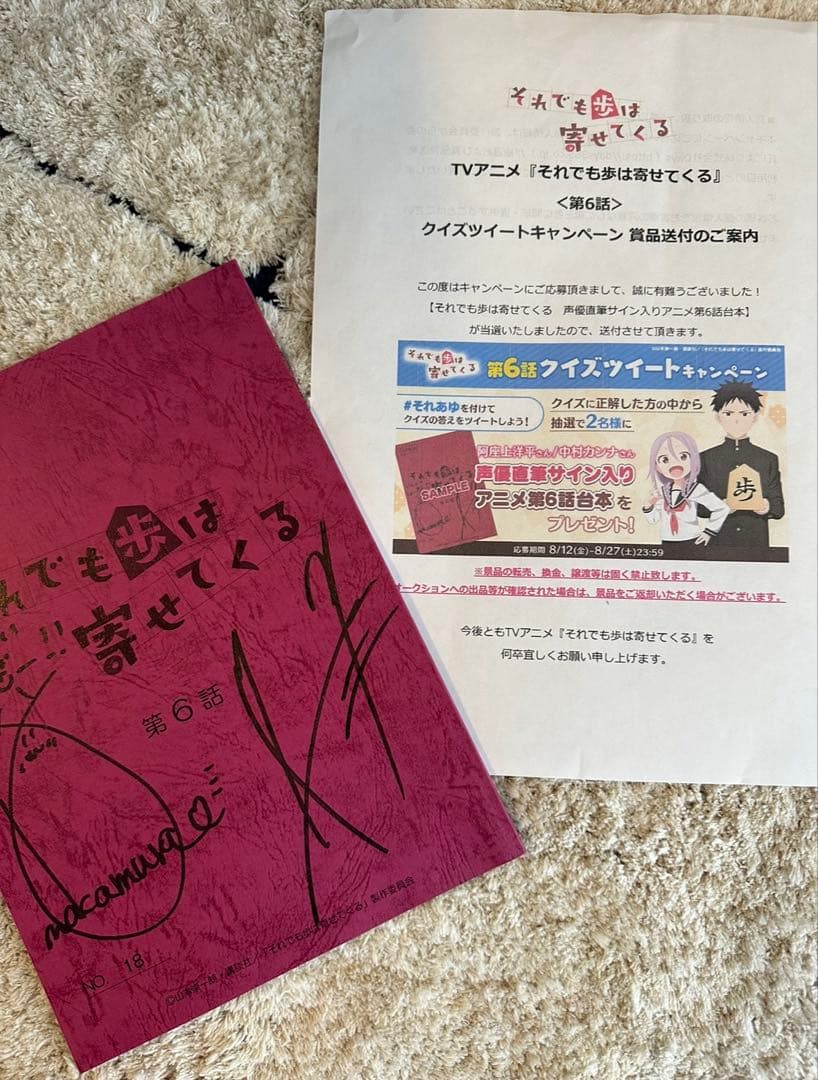 それでも歩は
寄せてくる
TVアニメ『それでも歩は寄せてくる』
<第6話>
クイズツイートキャンペーン 賞品送付のご案内
この度はキャンペーンにご応募頂きまして、誠に有難うございました！
【それでも歩は寄せてくる　声優直筆サイン入りアニメ第6話台本】
が当選いたしましたので、送付させて頂きます。
それでも歩は
寄せてくる
第6話クイズツイートキャンペーン
#それあゆを付けて
クイズの答えをツイートしよう！
クイズに正解した方の中から
抽選で2名様に
阿座上洋平さん/中村カンナさん
声優直筆サイン入り
アニメ第6話台本を
プレゼント!
SAMPLE
歩
応募期間 8/12(金)-8/27(土)23:59
※景品の転売、換金、譲渡等は固く禁止致します。
オークションへの出品等が確認された場合は、景品をご返却いただく場合がございます。
今後ともTVアニメ『それでも歩は寄せてくる』を
何卒宜しくお願い申し上げます。
れでも歩は
寄せてくる
第6話
nakamura
NO. 18
©山本崇一朗・講談社／「それでも歩は寄せてくる」製作委員会